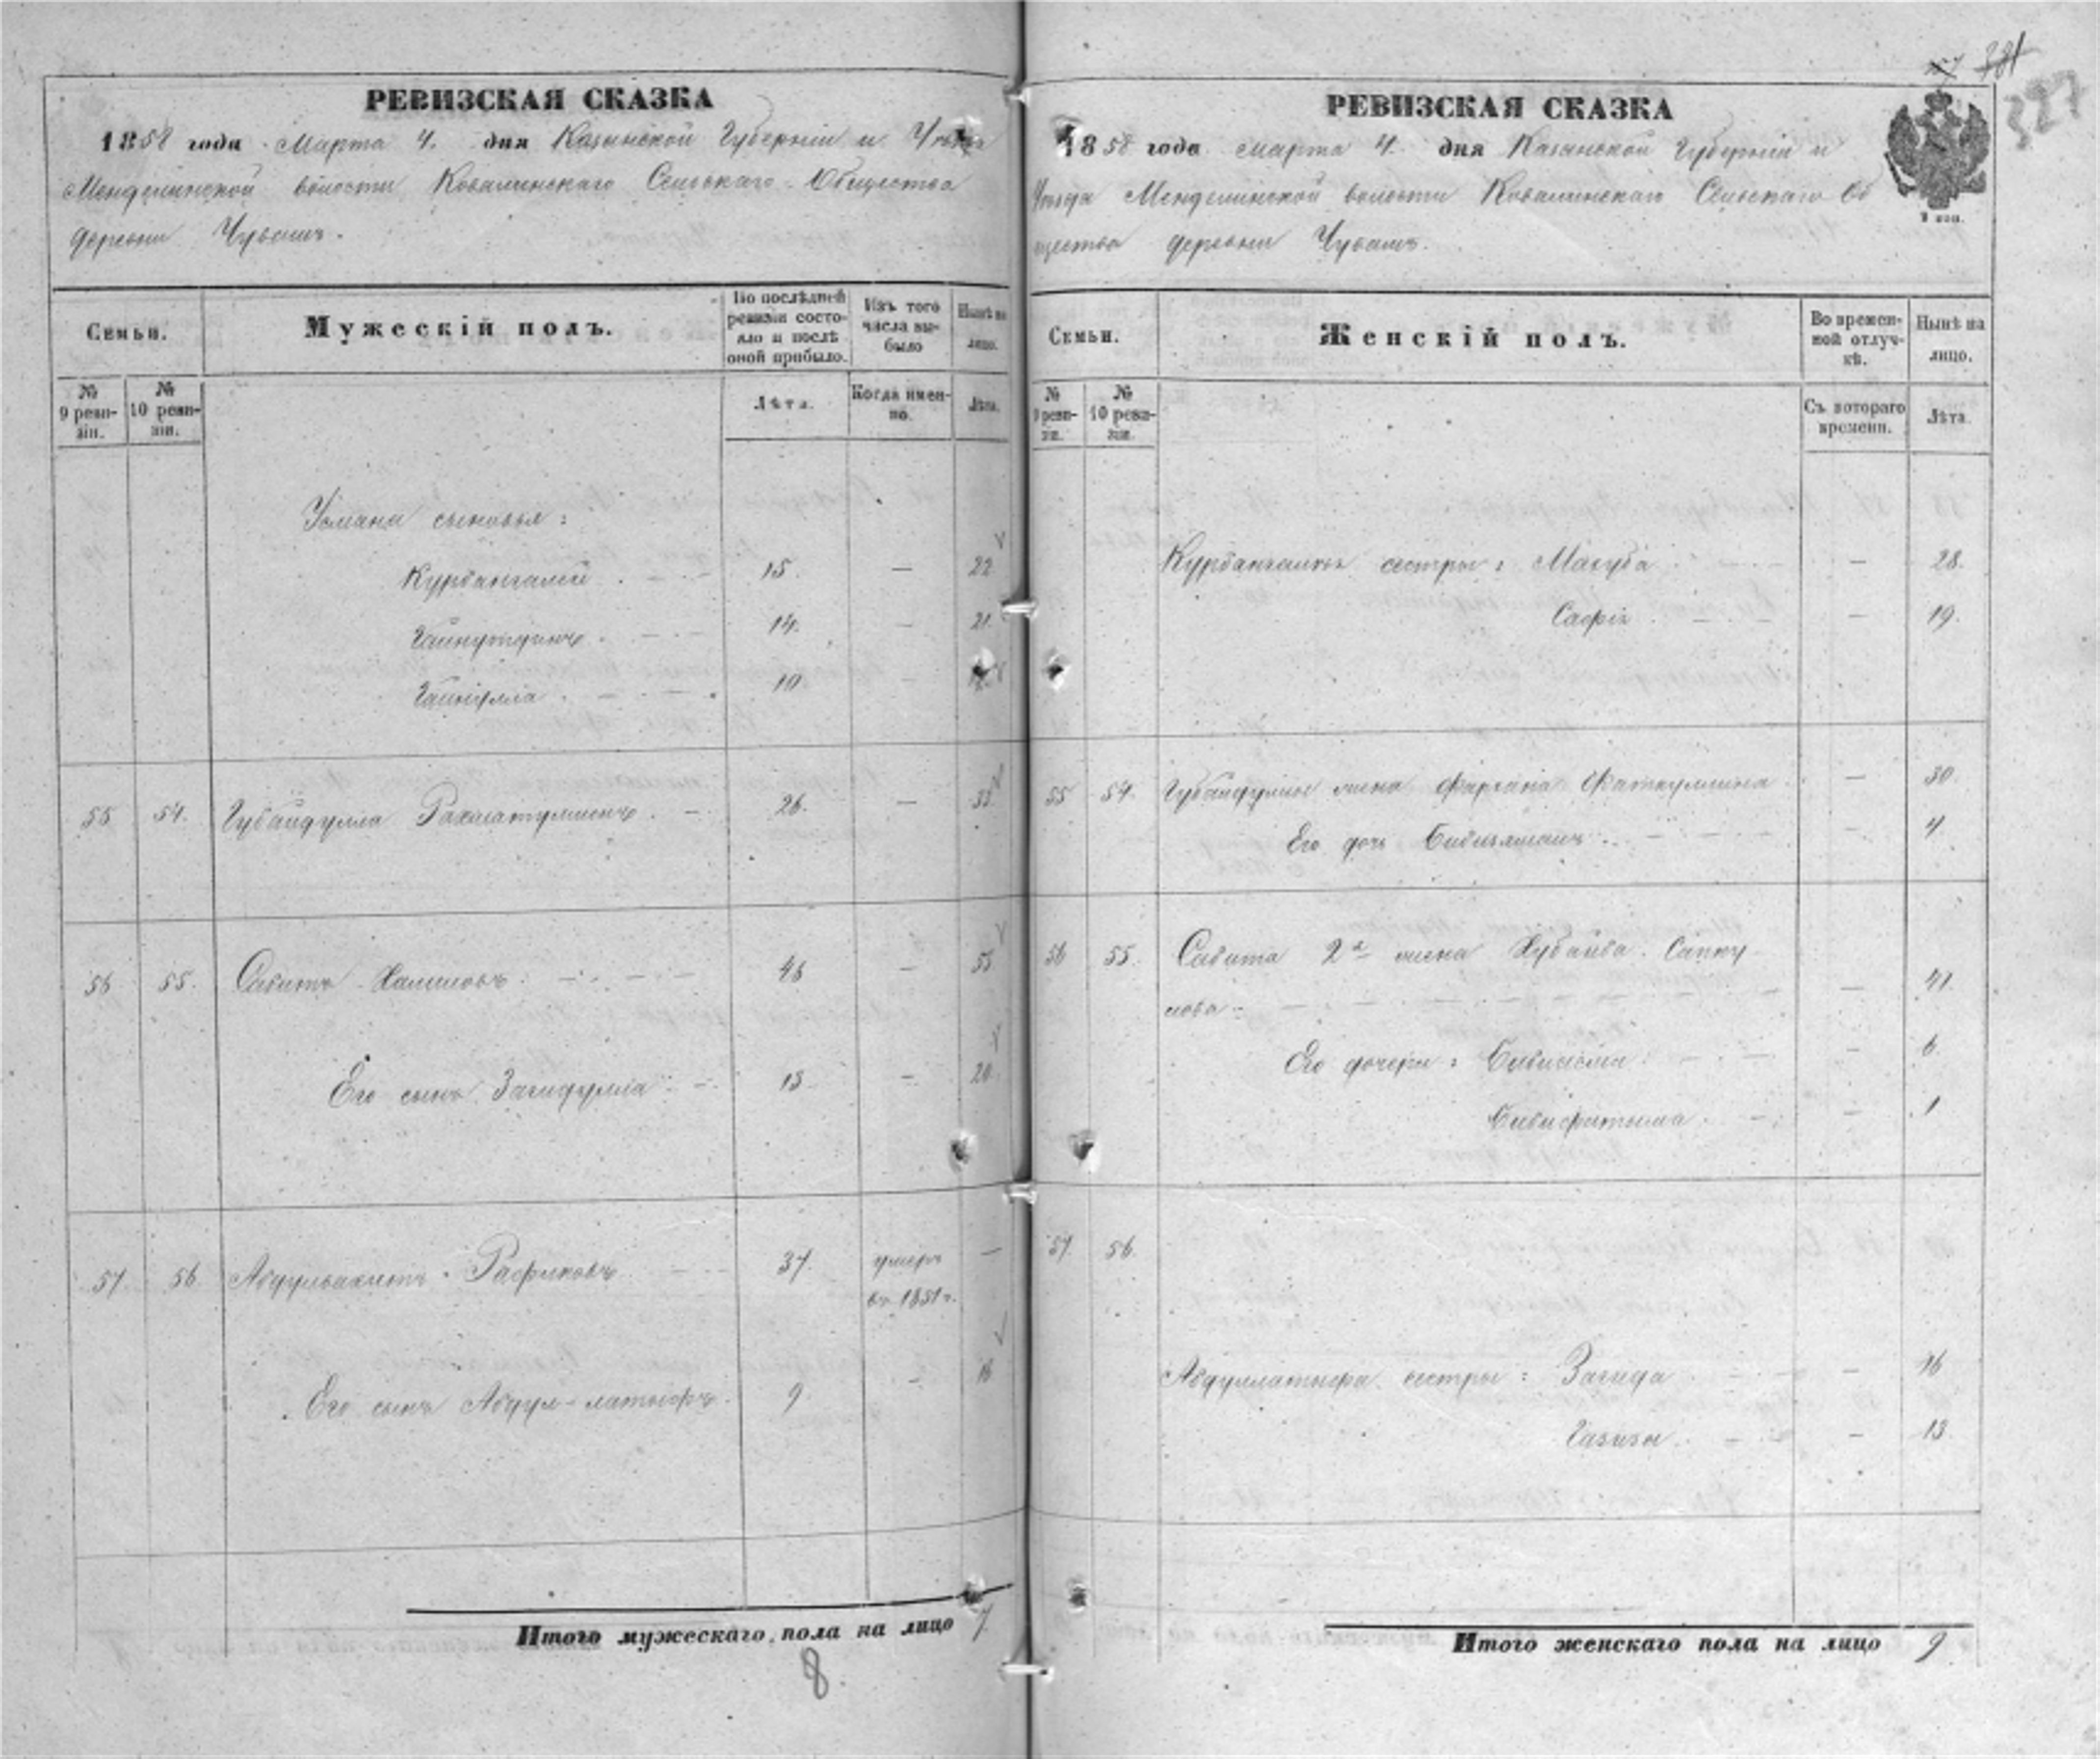 РЕВИЗСКАЯ СКАЗКА
1858 года Марта 4. дня Казанской Губерніи и Уѣзда
Менделинской волости Ковалинскаго Сельскаго Общества
деревни Чувашъ.
Семьи.
Мужескій полъ.
По послѣдней ревизіи состояло и послѣ оной прибыло.
Изъ того числа выбыло
Нынѣ на лицо.
№ 9 ревизіи.
№ 10 ревизіи.
Лѣта.
Когда именно.
Лѣта.
Усмана сыновья:
Курбангалей 15 — 22
Гайнутдинъ 14. — 21.
Гайнулла 10
55 54. Губайдулла Рахматуллинъ 26. — 33
56 55. Сабитъ Халиловъ 46 — 53
Его сынъ Загидулла 13 — 20
57. 56. Абдулвахитъ Рафиковъ 37. умеръ —
въ 1851 г.
Его сынъ Абдул-латыфъ 9 — 16
Итого мужескаго пола на лицо 7
8.
381
327
РЕВИЗСКАЯ СКАЗКА
1858 года марта 4. дня Казанской Губерніи и
Уѣзда Менделинской волости Ковалинскаго Сельскаго Об
щества деревни Чувашъ.
Семьи.
Женскій полъ.
Во временной отлучкѣ.
Нынѣ на лицо.
№ 9 ревизіи.
№ 10 ревизіи.
Съ котораго времени.
Лѣта.
Курбангалея сестры: — 28.
Сафія — 19.
55 54. Губайдуллы жена Фархана Фаткуллина — 30
Его дочь — 4
56 55. Сабита 2я жена Хубайба Сапку
лова — 41.
Его дочери: — 6
Бибифатыма — 1
57. 56.
Абдуллатыфа сестры: Загида — 16
Газиза — 13
Итого женскаго пола на лицо 9